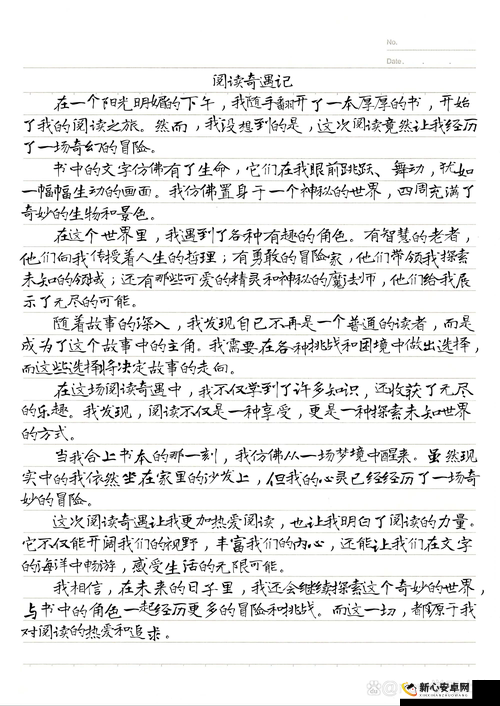 No.
Date. . .
阅读奇遇记
在一个阳光明媚的下午，我随手翻开了一本厚厚的书，开始
了我的阅读之旅。然而，我没想到的是，这次阅读竟然让我经历
了一场奇幻的冒险。
书中的文字仿佛有了生命，它们在我眼前跳跃、舞动，犹如
一幅幅生动的画面。我仿佛置身于一个神秘的世界，四周充满了
奇妙的生物和景色。
在这个世界里，我遇到了各种有趣的角色。有智慧的老者，
他们向我传授着人生的哲理；有勇敢的冒险家，他们带领我探索
未知的领域；还有那些可爱的精灵和神秘的魔法师，他们给我展
示了无尽的可能。
随着故事的深入，我发现自己不再是一个普通的读者，而是
成为了这个故事中的主角。我需要在各种挑战和困境中做出选择，
而这些选择将决定故事的走向。
在这场阅读奇遇中，我不仅学到了许多知识，还收获了无尽
的乐趣。我发现，阅读不仅是一种享受，更是一种探索未知世界
的方式。
当我合上书本的那一刻，我仿佛从一场梦境中醒来。虽然现
实中的我依然坐在家里的沙发上，但我的心灵已经经历了一场奇
妙的冒险。
这次阅读奇遇让我更加热爱阅读，也让我明白了阅读的力量。
它不仅能开阔我们的视野，丰富我们的内心，还能让我们在文字
的海洋中畅游，感受生活的无限可能。
我相信，在未来的日子里，我还会继续探索这个奇妙的世界，
与书中的角色一起经历更多的冒险和挑战。而这一切，都源于我
对阅读的热爱和追求。
新心安卓网